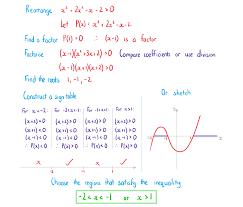 Rearrange x³ + 2x² - x - 2 > 0
Let P(x) = x³ + 2x² - x - 2
Find a factor P(1) = 0 ∴ (x-1) is a factor
Factorise (x-1)(x²+3x+2) > 0 Compare coefficients or use division
(x-1)(x+1)(x+2) > 0
Find the roots 1, -1, -2
Construct a sign table Or sketch
For x < -2: For -2 < x < -1: For -1 < x < 1: For x > 1:
(x+2) < 0 (x+2) > 0 (x+2) > 0 (x+2) > 0
(x+1) < 0 (x+1) < 0 (x+1) > 0 (x+1) > 0
(x-1) < 0 (x-1) < 0 (x-1) < 0 (x-1) > 0
∴ P(x) < 0 ∴ P(x) > 0 ∴ P(x) < 0 ∴ P(x) > 0
x ✓ x ✓
-2 -1 1
Choose the regions that satisfy the inequality
-2 < x < -1 or x > 1